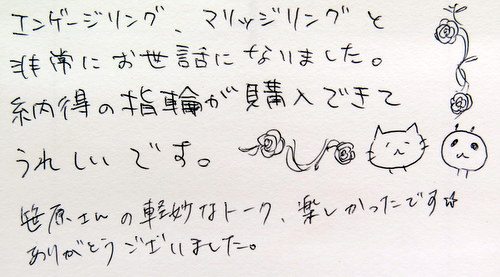 エンゲージリング、マリッジリングと
非常にお世話になりました。
納得の指輪が購入できて
うれしいです。
笹原さんの軽妙なトーク、楽しかったです☆
ありがとうございました。